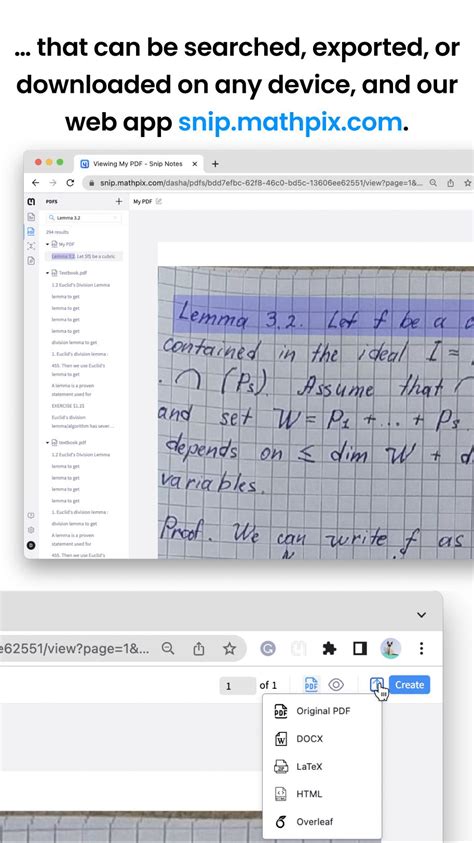 ... that can be searched, exported, or
downloaded on any device, and our
web app snip.mathpix.com.
Viewing My PDF - Snip Notes
snip.mathpix.com/dasha/pdfs/bdd7efbc-62f8-46c0-bd5c-13606ee62551/view?page=1&...
PDFS
My PDF
Lemma 3.2
294 results
My PDF
Lemma 3.2. Let Sf5 be a cubic
Textbook.pdf
1.2 Euclid's Division Lemma
lemma to get
lemma to get
lemma to get
lemma to get
division lemma to get
1. Euclid's division lemma :
455. Then we use Euclid's
lemma to get
A lemma is a proven
statement used for
EXERCISE $1.25
Euclid's division
lemma/algorithm has sever...
textbook.pdf
1.2 Euclid's Division Lemma
lemma to get
lemma to get
lemma to get
lemma to get
1. Euclid's division lemma :
division lemma to get
A lemma is a proven
statement used for
455. Then we use Euclid's
lemma to get
Lemma 3.2. Let f be a
contained in the ideal I =
. ∩ (Ps). Assume that
and set W = P1 + ... + Ps
depends on ≤ dim W + d
variables.
Proof. We can write f as
e62551/view?page=1&...
1 of 1
PDF
Create
Original PDF
DOCX
LaTeX
HTML
Overleaf